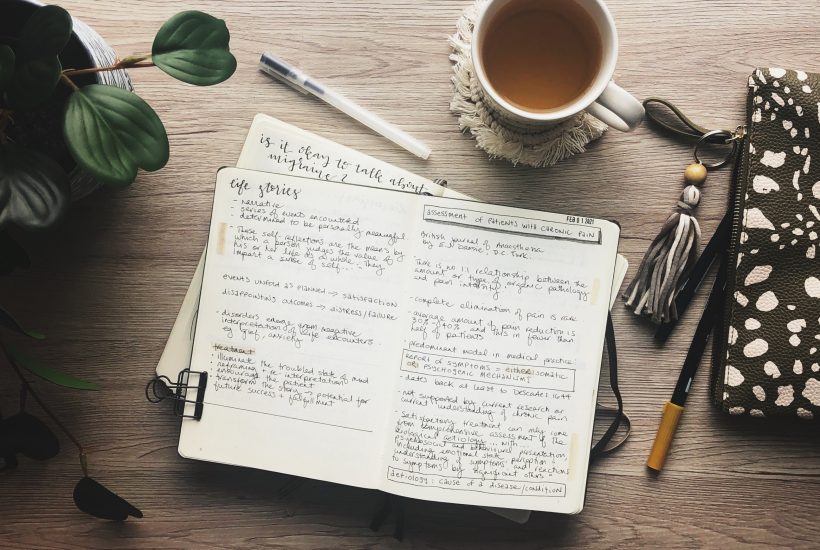 is it okay to talk about
migraine?
life stories
- narrative
- series of events encountered
- determined to be personally meaningful
- These self-reflections are the means by
which a person judges the value of
his or her life as a whole. They
impart a sense of self...
EVENTS UNFOLD AS PLANNED → SATISFACTION
DISAPPOINTING OUTCOMES → DISTRESS/FAILURE
- disorders emerge from negative
interpretation of life encounters
eg. grief, anxiety
treatment
- illuminate the troubled state of mind
- reframing + re interpretation
- encourage the patient
- transform the story → potential for
future success + fulfillment
FEB 01 2021
ASSESSMENT OF PATIENTS WITH CHRONIC PAIN
British Journal of Anaesthesia
by E.J. Dansie, D.C. Turk
There is no 1:1 relationship between the
amount or type of organic pathology
and pain intensity
- complete elimination of pain is rare
- average amount of pain reduction is
30% - 40% and this in fewer than
half of patients
- predominant model in medical practice:
REPORT OF SYMPTOMS = either SOMATIC
OR PSYCHOGENIC MECHANISMS
- dates back at least to Descartes 1644
- not supported by current research or
current understanding of chronic pain
- Satisfactory treatment can only come
from comprehensive assessment of the
biological aetiology, with
psychosocial and behavioural presentation,
including emotional state, perception +
understanding of symptoms and reactions
to symptoms by significant others"
AETIOLOGY: CAUSE OF A DISEASE/CONDITION